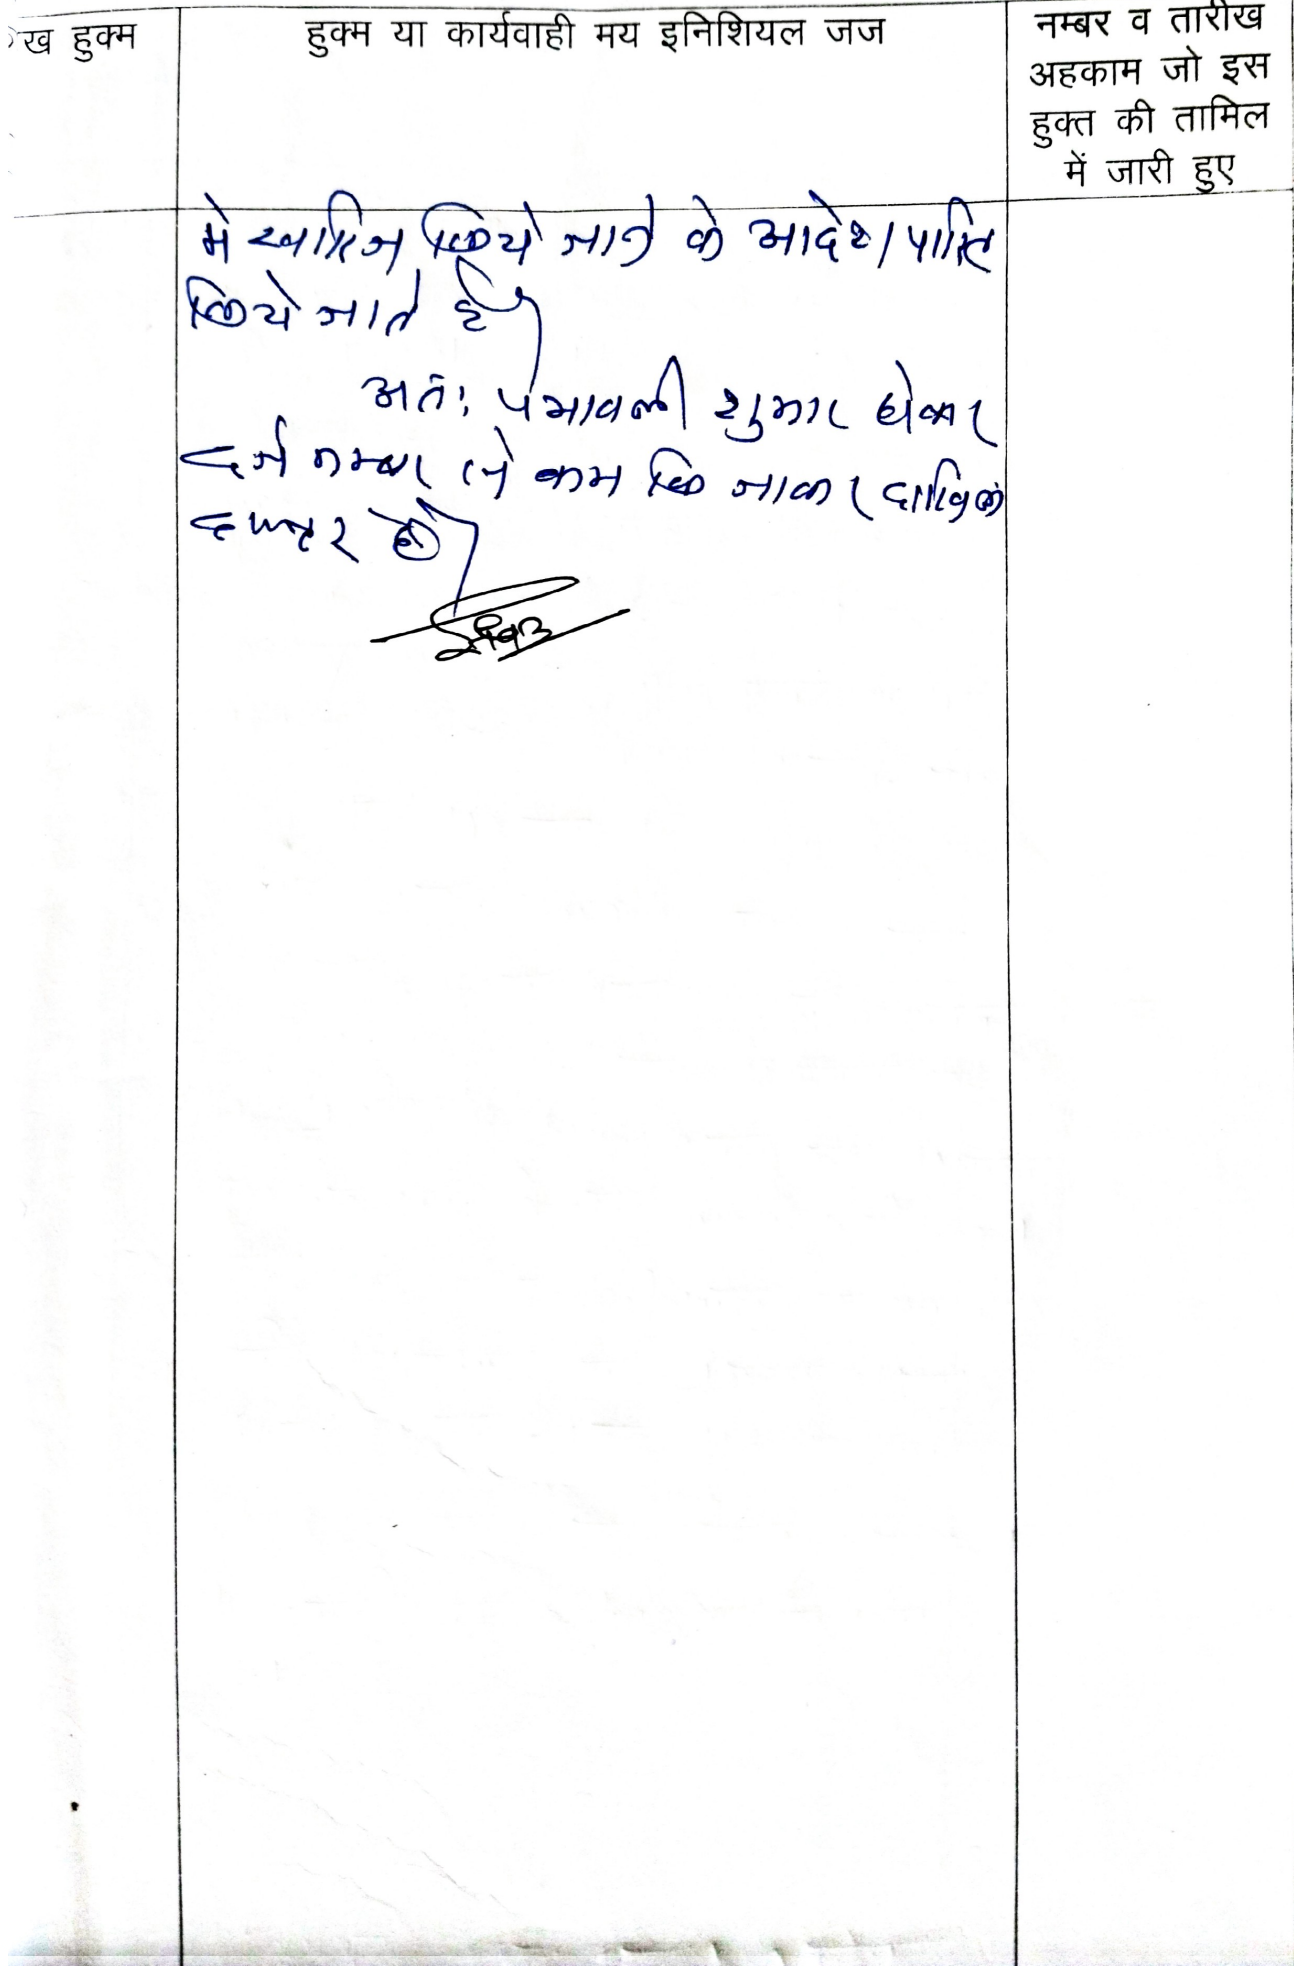 ख हुक्म
हुक्म या कार्यवाही मय इनिशियल जज
नम्बर व तारीख
अहकाम जो इस
हुक्त की तामिल
में जारी हुए
मे खारिज किये जाने के आदेश पारित
किये जाते है।
अतः पत्रावली शुमार होकर
दर्ज नम्बर से कम कि जाकर दाखिल
दफ्तर हो।